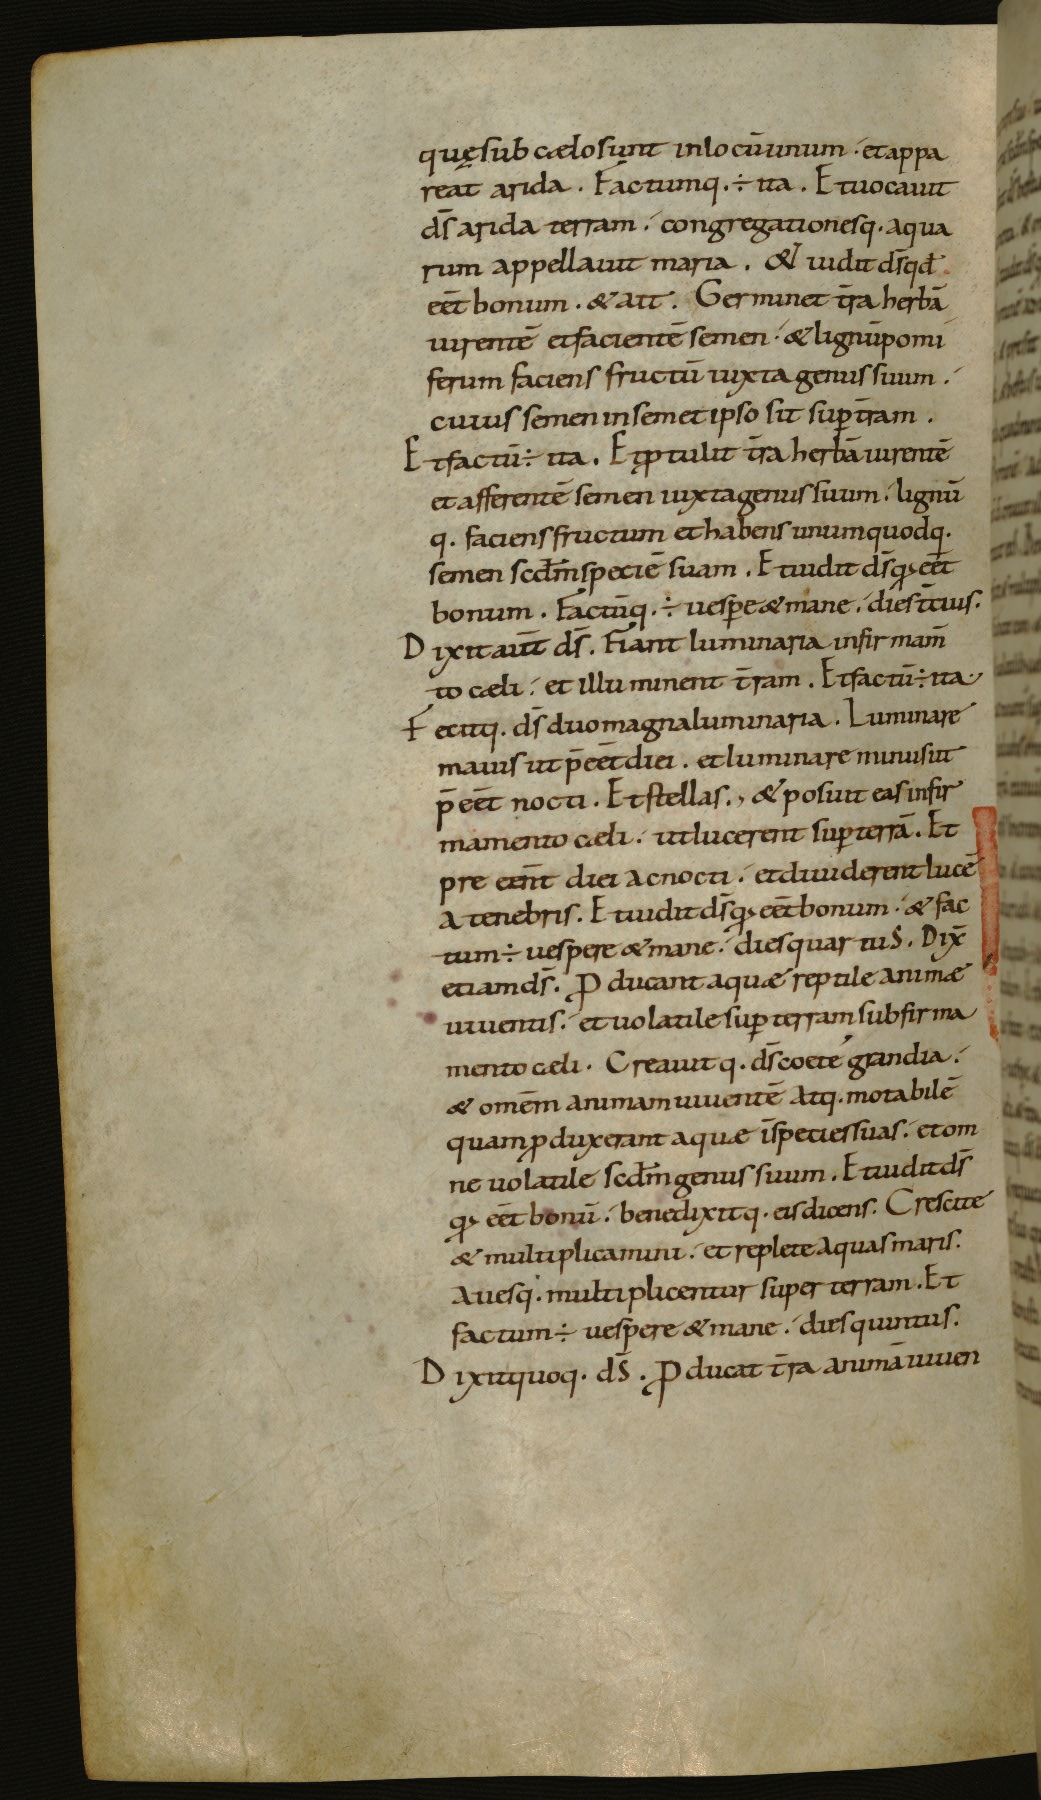 quęsub cælo sunt in locū unum . et appa
reat arida . Factumq. ÷ ita . Et uocauit
ds̄ arida terram . congregationesq. aqua
rum appellauit maria . & uidit ds̄ qđ
eēt bonum . & ait . Germinet t̄ra herbā
uirentē et facientē semen . & lignū pomi
ferum faciens fructū iuxta genus suum .
cuius semen in semet ipso sit sup t̄ram .
Et factū ÷ ita . Et ꝓtulit t̄ra herbā uirentē
et afferentē semen iuxta genus suum . lignū
q. faciens fructum et habens unumquodq.
semen scdm̄ speciē suam . Et uidit ds̄ qꝫ eēt
bonum . Factūq. ÷ uespe & mane . dies t̄cius .
Dixit aut̄ ds̄ . Fiant luminaria in firmam̄
to cæli . et illuminent t̄ram . Et factū ÷ ita .
Fecitq. ds̄ duo magna luminaria . Luminare
maius ut p̄eēt diei . et luminare minus ut
p̄eēt nocti . Et stellas . & posuit eas in fir
mamento cæli . ut lucerent sup terrā . Et
pre eēnt diei ac nocti . et diuiderent lucē
a tenebris . Et uidit ds̄ qꝫ eēt bonum . & fac
tum ÷ uespere & mane . dies quartuS . Dix̄
etiam ds̄ . ꝓducant aquæ reptile animæ
uiuentis . et uolatile sup terram sub firma
mento cæli . Creauitq. ds̄ coete grandia .
& omēm animam uiuentē atq. motabilē
quam ꝓduxerant aquæ ī species suas . et om
ne uolatile scdm̄ genus suum . Et uidit ds̄
qꝫ eēt bonū . benedixitq. eis dicens . Crescite
& multiplicamini . et replete aquas maris .
Auesq. multiplicentur super terram . Et
factum ÷ uespere & mane . dies quintus .
Dixit quoq. dS̄ . ꝓducat t̄ra animā uiuen